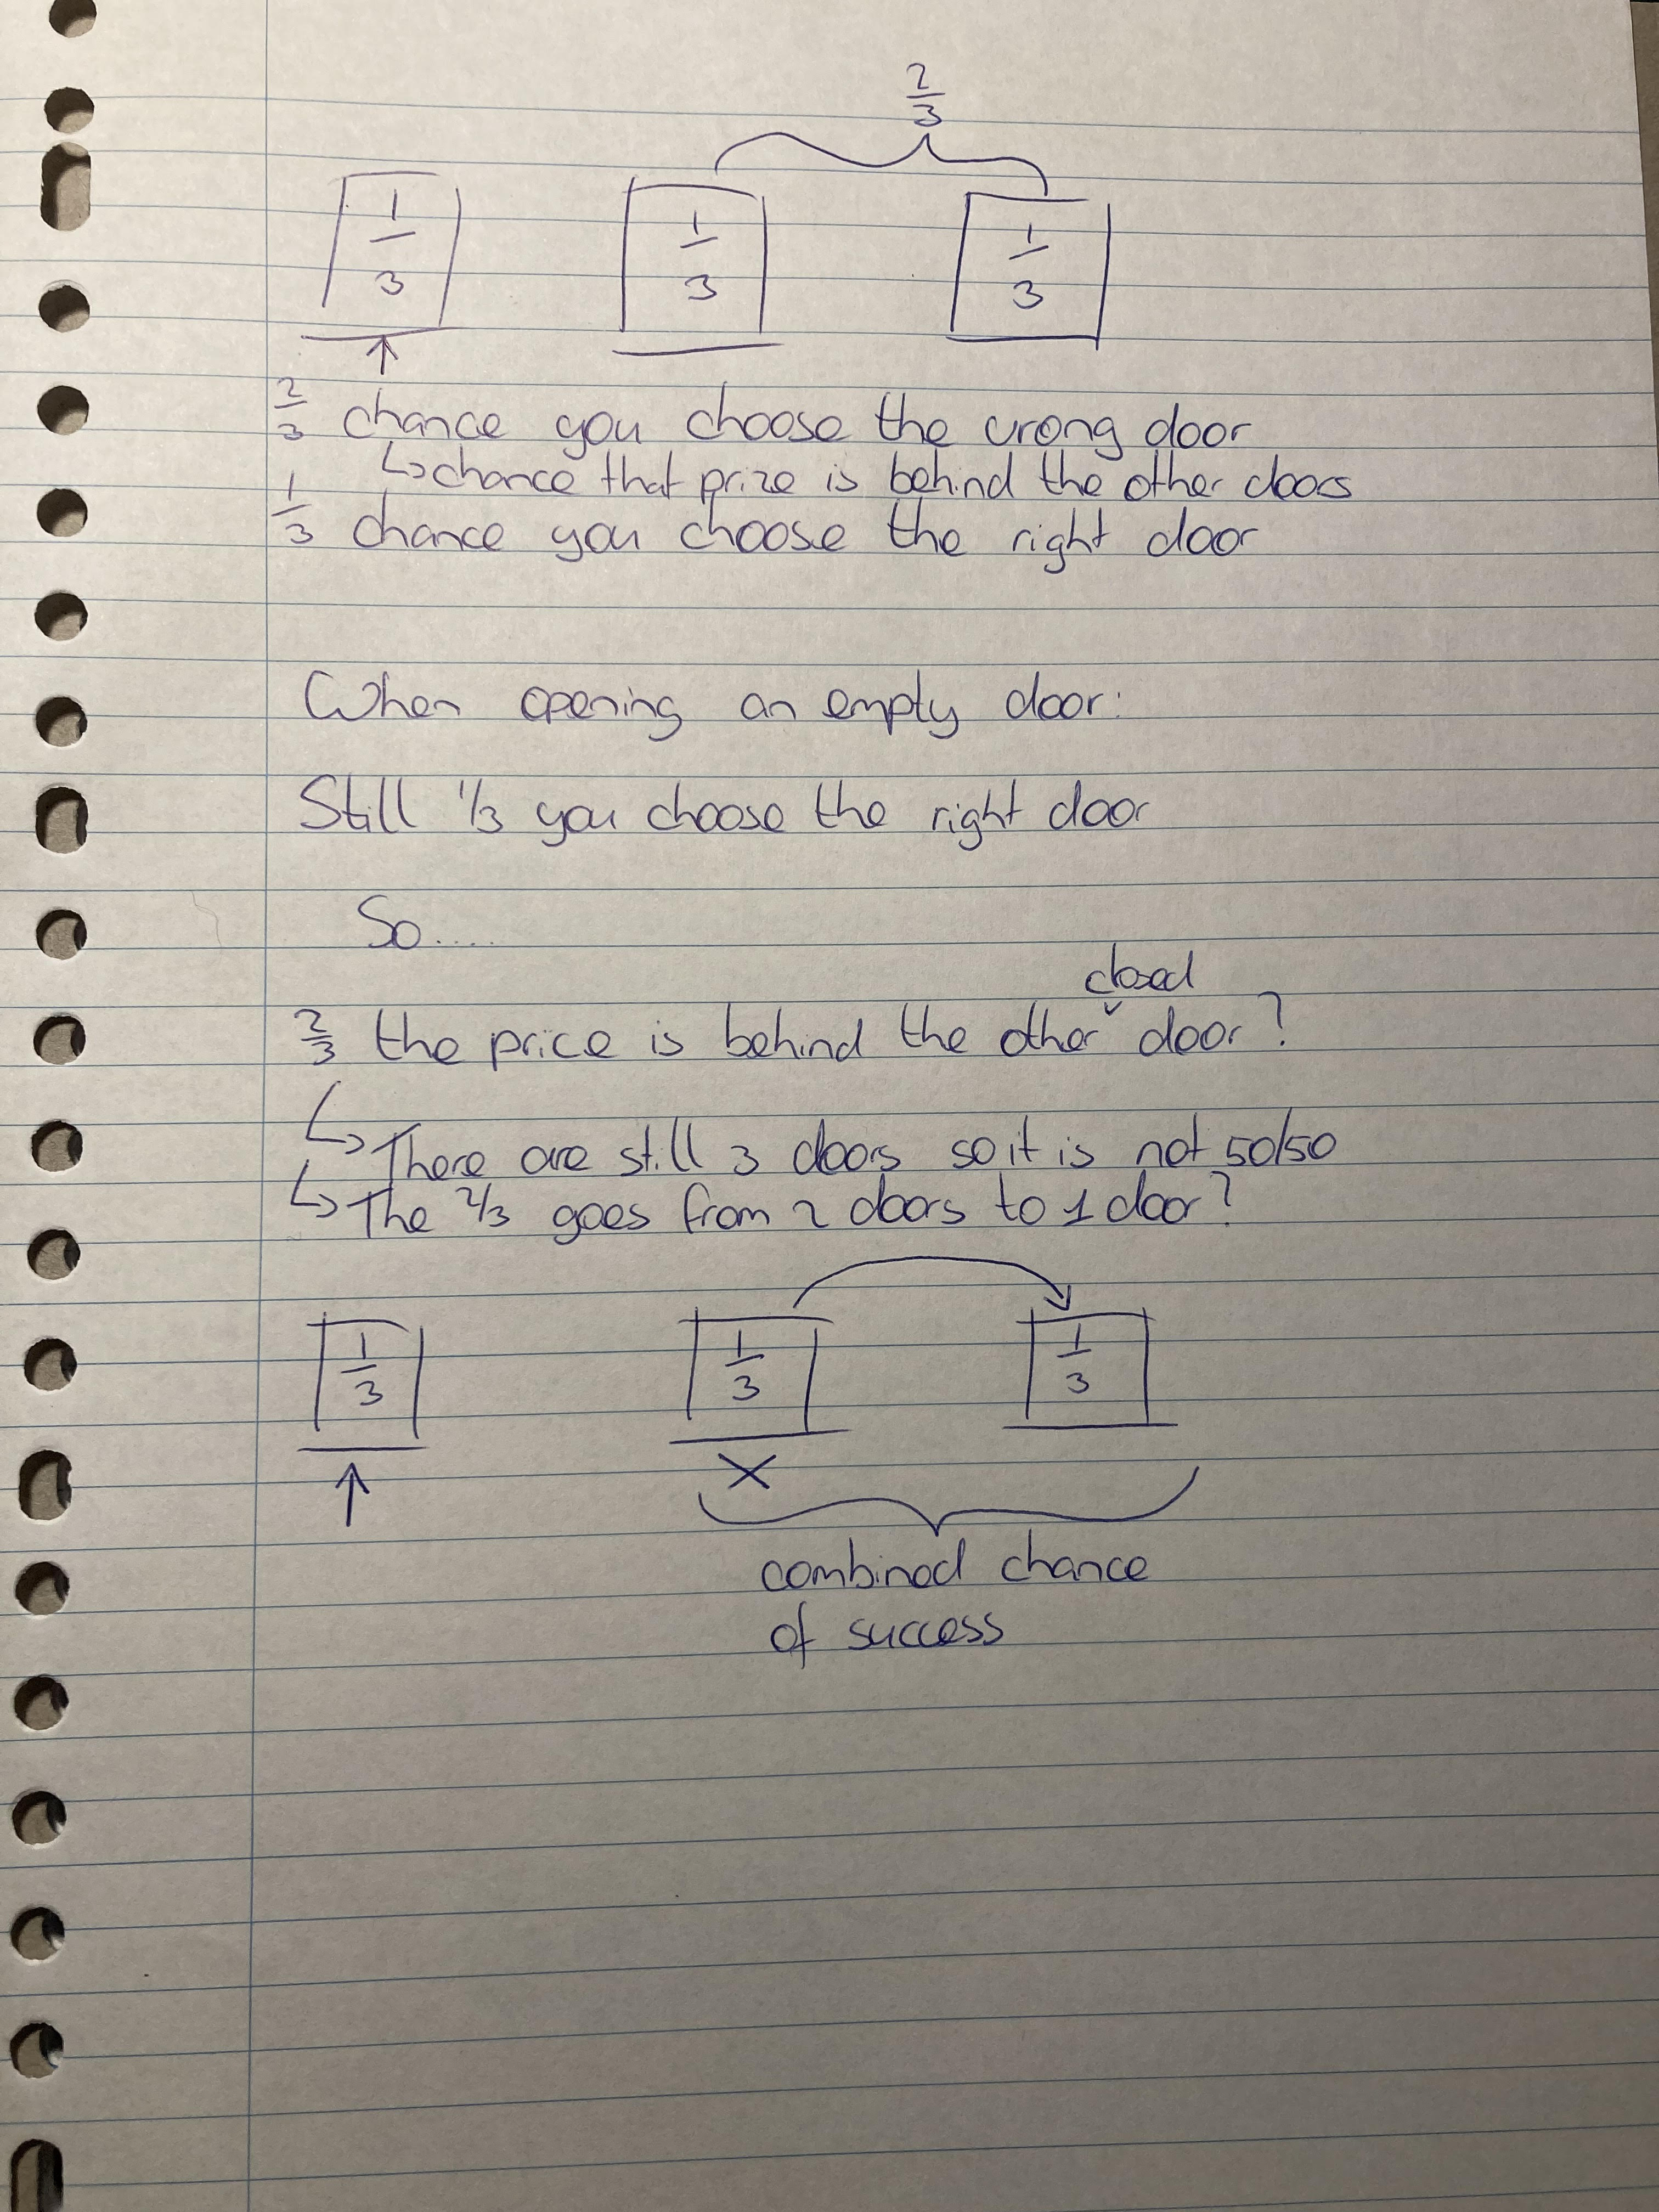 2/3
1/3 1/3 1/3
2/3 chance you choose the wrong door
chance that prize is behind the other doors
1/3 chance you choose the right door
When opening an empty door:
Still 1/3 you choose the right door
So....
closed
2/3 the price is behind the other door?
There are still 3 doors so it is not 50/50
The 2/3 goes from 2 doors to 1 door?
1/3 1/3 1/3
X
combined chance
of success